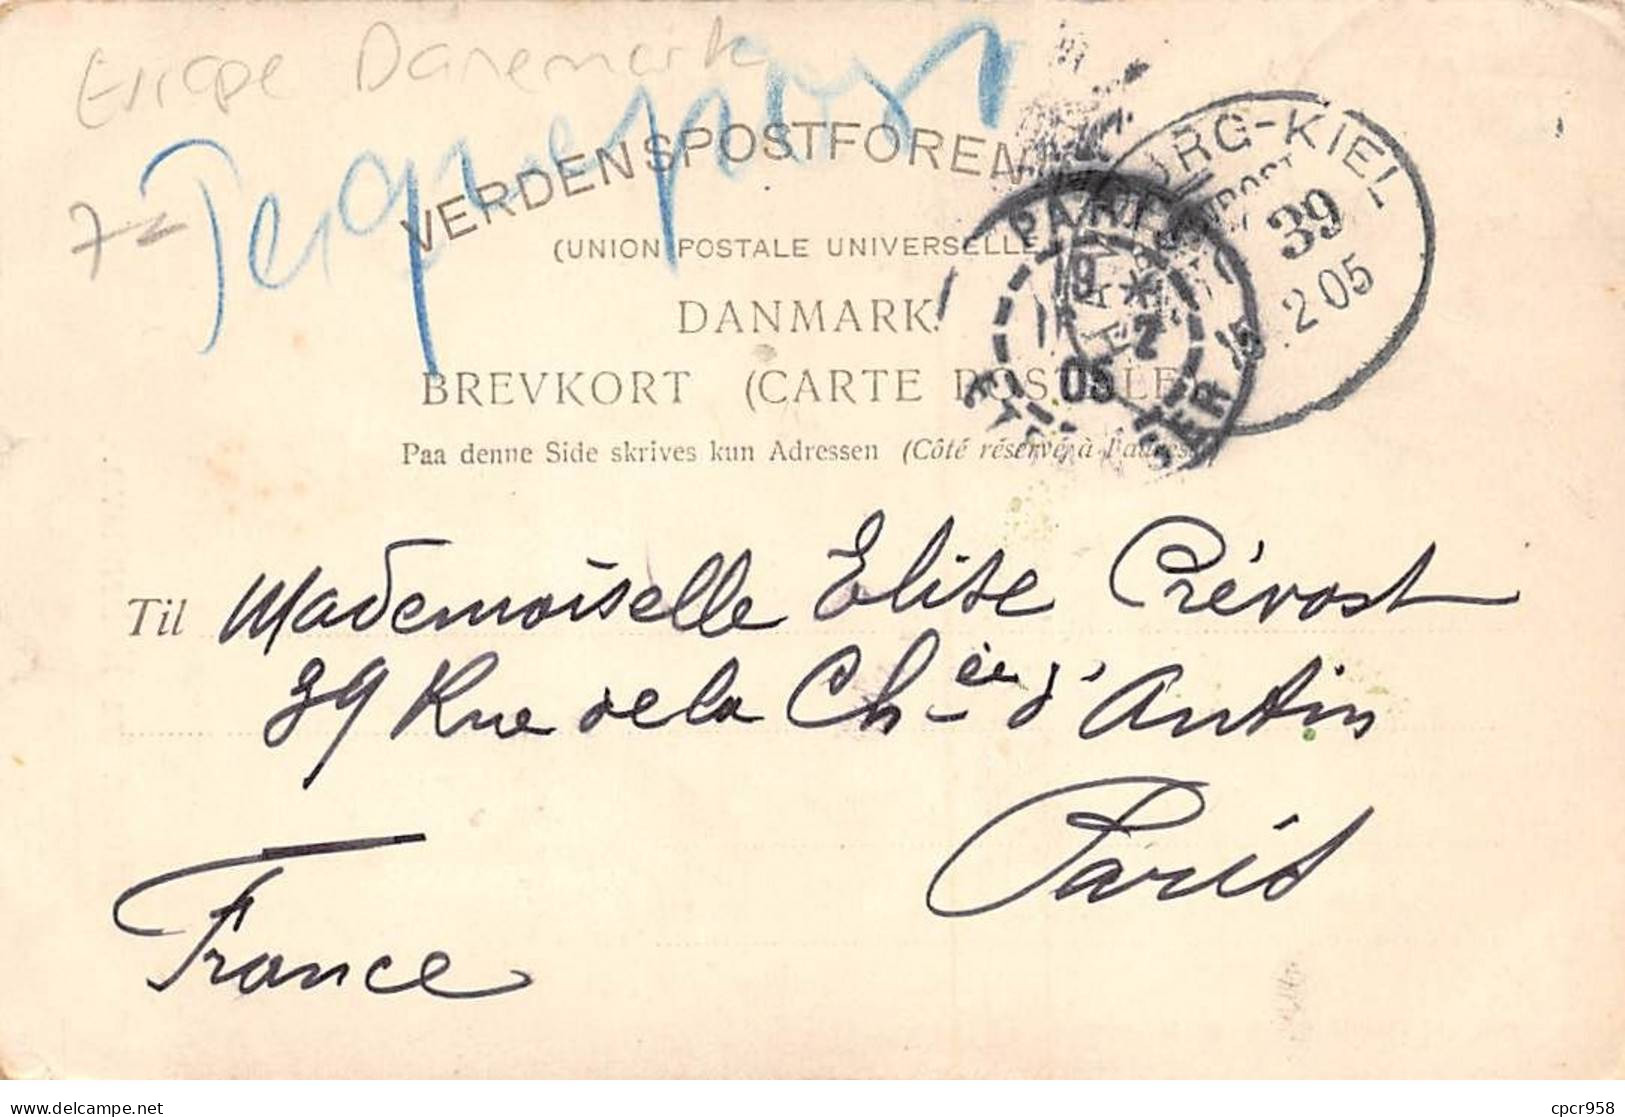 Europe Danemark
7=
VERDENSPOSTFOREN
(UNION POSTALE UNIVERSELLE
DANMARK.
BREVKORT (CARTE POSTALE
Paa denne Side skrives kun Adressen (Côté réservé à l'adresse)
URG-KIEL
39
2 05
PARIS
19
2
05
Til Mademoiselle Elise Prévost
39 Rue de la Ch-ée d'Antin
Paris
France
cpcr958